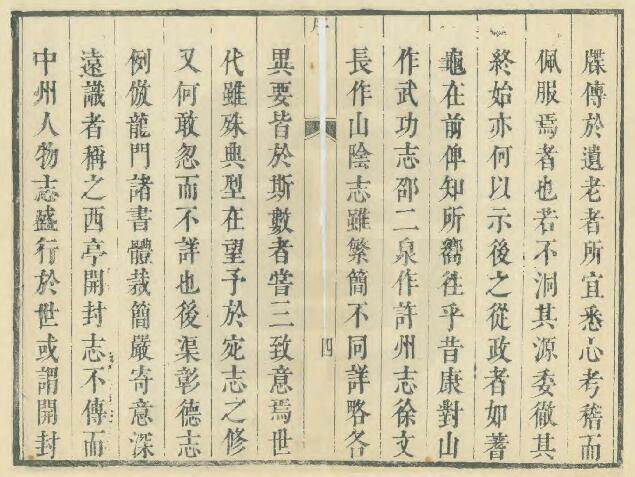 牒傳於遺老者所宜悉心考稽而
佩服焉者也若不洞其源委徹其
終始亦何以示後之從政者如蓍
龜在前俾知所嚮往乎昔康對山
作武功志邵二泉作許州志徐文
長作山陰志雖繁簡不同詳略各
序
四
異要皆於斯數者嘗三致意焉世
代雖殊典型在望予於宛志之修
又何敢忽而不詳也後渠彰德志
例倣龍門諸書體裁簡嚴寄意深
遠識者稱之西亭開封志不傳而
中州人物志盛行於世或謂開封